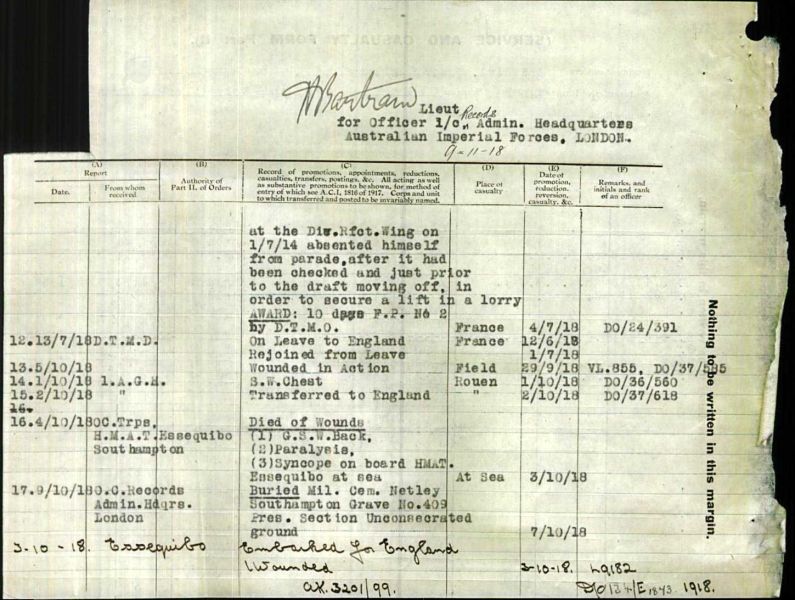 H Bartram Lieut
for Officer i/c, Records Admin. Headquarters
Australian Imperial Forces, LONDON.
9-11-18
(A) Report (B) (C) (D) (E) (F)
Date. From whom received Authority of Part II. of Orders Record of promotions, appointments, reductions, casualties, transfers, postings, &c. All acting as well as substantive promotions to be shown, for method of entry of which see A.C.I. 1816 of 1917. Corps and unit to which transferred and posted to be invariably named. Place of casualty Date of promotion, reduction, reversion, casualty, &c. Remarks, and initials and rank of an officer
at the Div.Rfct.Wing on
1/7/14 absented himself
from parade,after it had
been checked and just prior
to the draft moving off, in
order to secure a lift in a lorry
AWARD: 10 days F.P. No 2
by D.T.M.O. France 4/7/18 DO/24/391
12.13/7/18 D.T.M.D. On Leave to England France 12/6/18
Rejoined from Leave 1/7/18
13.5/10/18 Wounded in Action Field 29/9/18 VL.855, DO/37/
14.1/10/18 1.A.G.H. S.W.Chest Rouen 1/10/18 DO/36/560
15.2/10/18 " Transferred to England " 2/10/18 DO/37/618
16.
16.4/10/18 OC.Trps, Died of Wounds
H.M.A.T.Essequibo (1) G.S.W.Back,
Southampton (2)Paralysis,
(3)Syncope on board HMAT.
Essequibo at sea At Sea 3/10/18
17.9/10/18 O.C.Records Buried Mil. Cem. Netley
Admin.Hdqrs. Southampton Grave No.409
London Pres. Section Unconsecrated
ground 7/10/18
3-10-18. Essequibo Embarked for England
Wounded 3-10-18. L9182
AK.3201/99. 1918.
Nothing to be written in this margin.